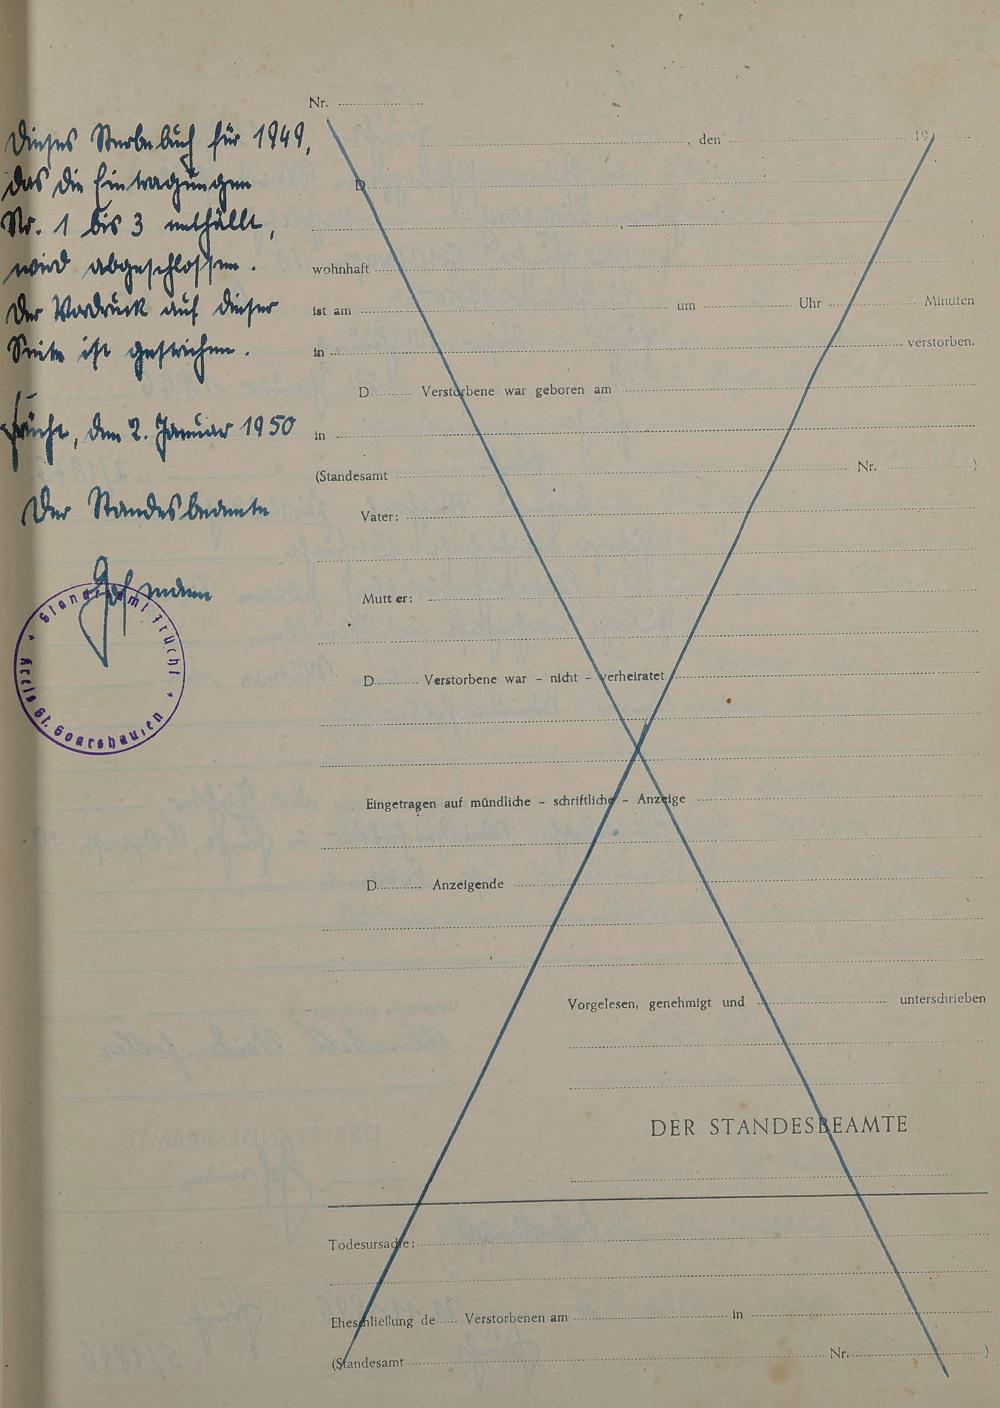 Dieses Sterbebuch für 1949,
das die Eintragungen
Nr. 1 bis 3 enthällt,
wird abgeschlossen.
Der Vordruck auf dieser
Seite ist gestrichen.
Frücht, den 2. Januar 1950
Der Standesbeamte
Standesamt Frücht
Kreis St. Goarshausen
Nr.
, den 19
D
,
wohnhaft
ist am um Uhr Minuten
in verstorben.
D Verstorbene war geboren am
in
(Standesamt Nr. )
Vater:
Mutter:
D Verstorbene war - nicht - verheiratet
Eingetragen auf mündliche - schriftliche - Anzeige
D Anzeigende
Vorgelesen, genehmigt und unterschrieben
DER STANDESBEAMTE
Todesursache:
Eheschließung de Verstorbenen am in
(Standesamt Nr. )